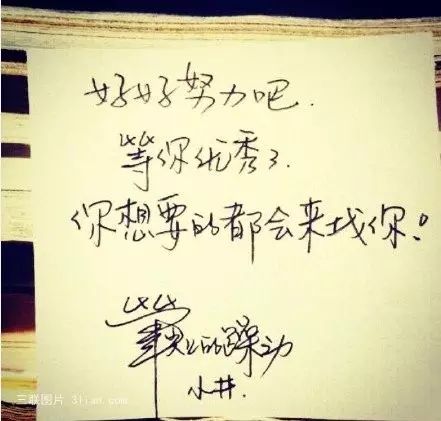 好好努力吧.
等你优秀了.
你想要的都会来找你!
笔尖上的躁动
小井.
三联图片 3lian.com